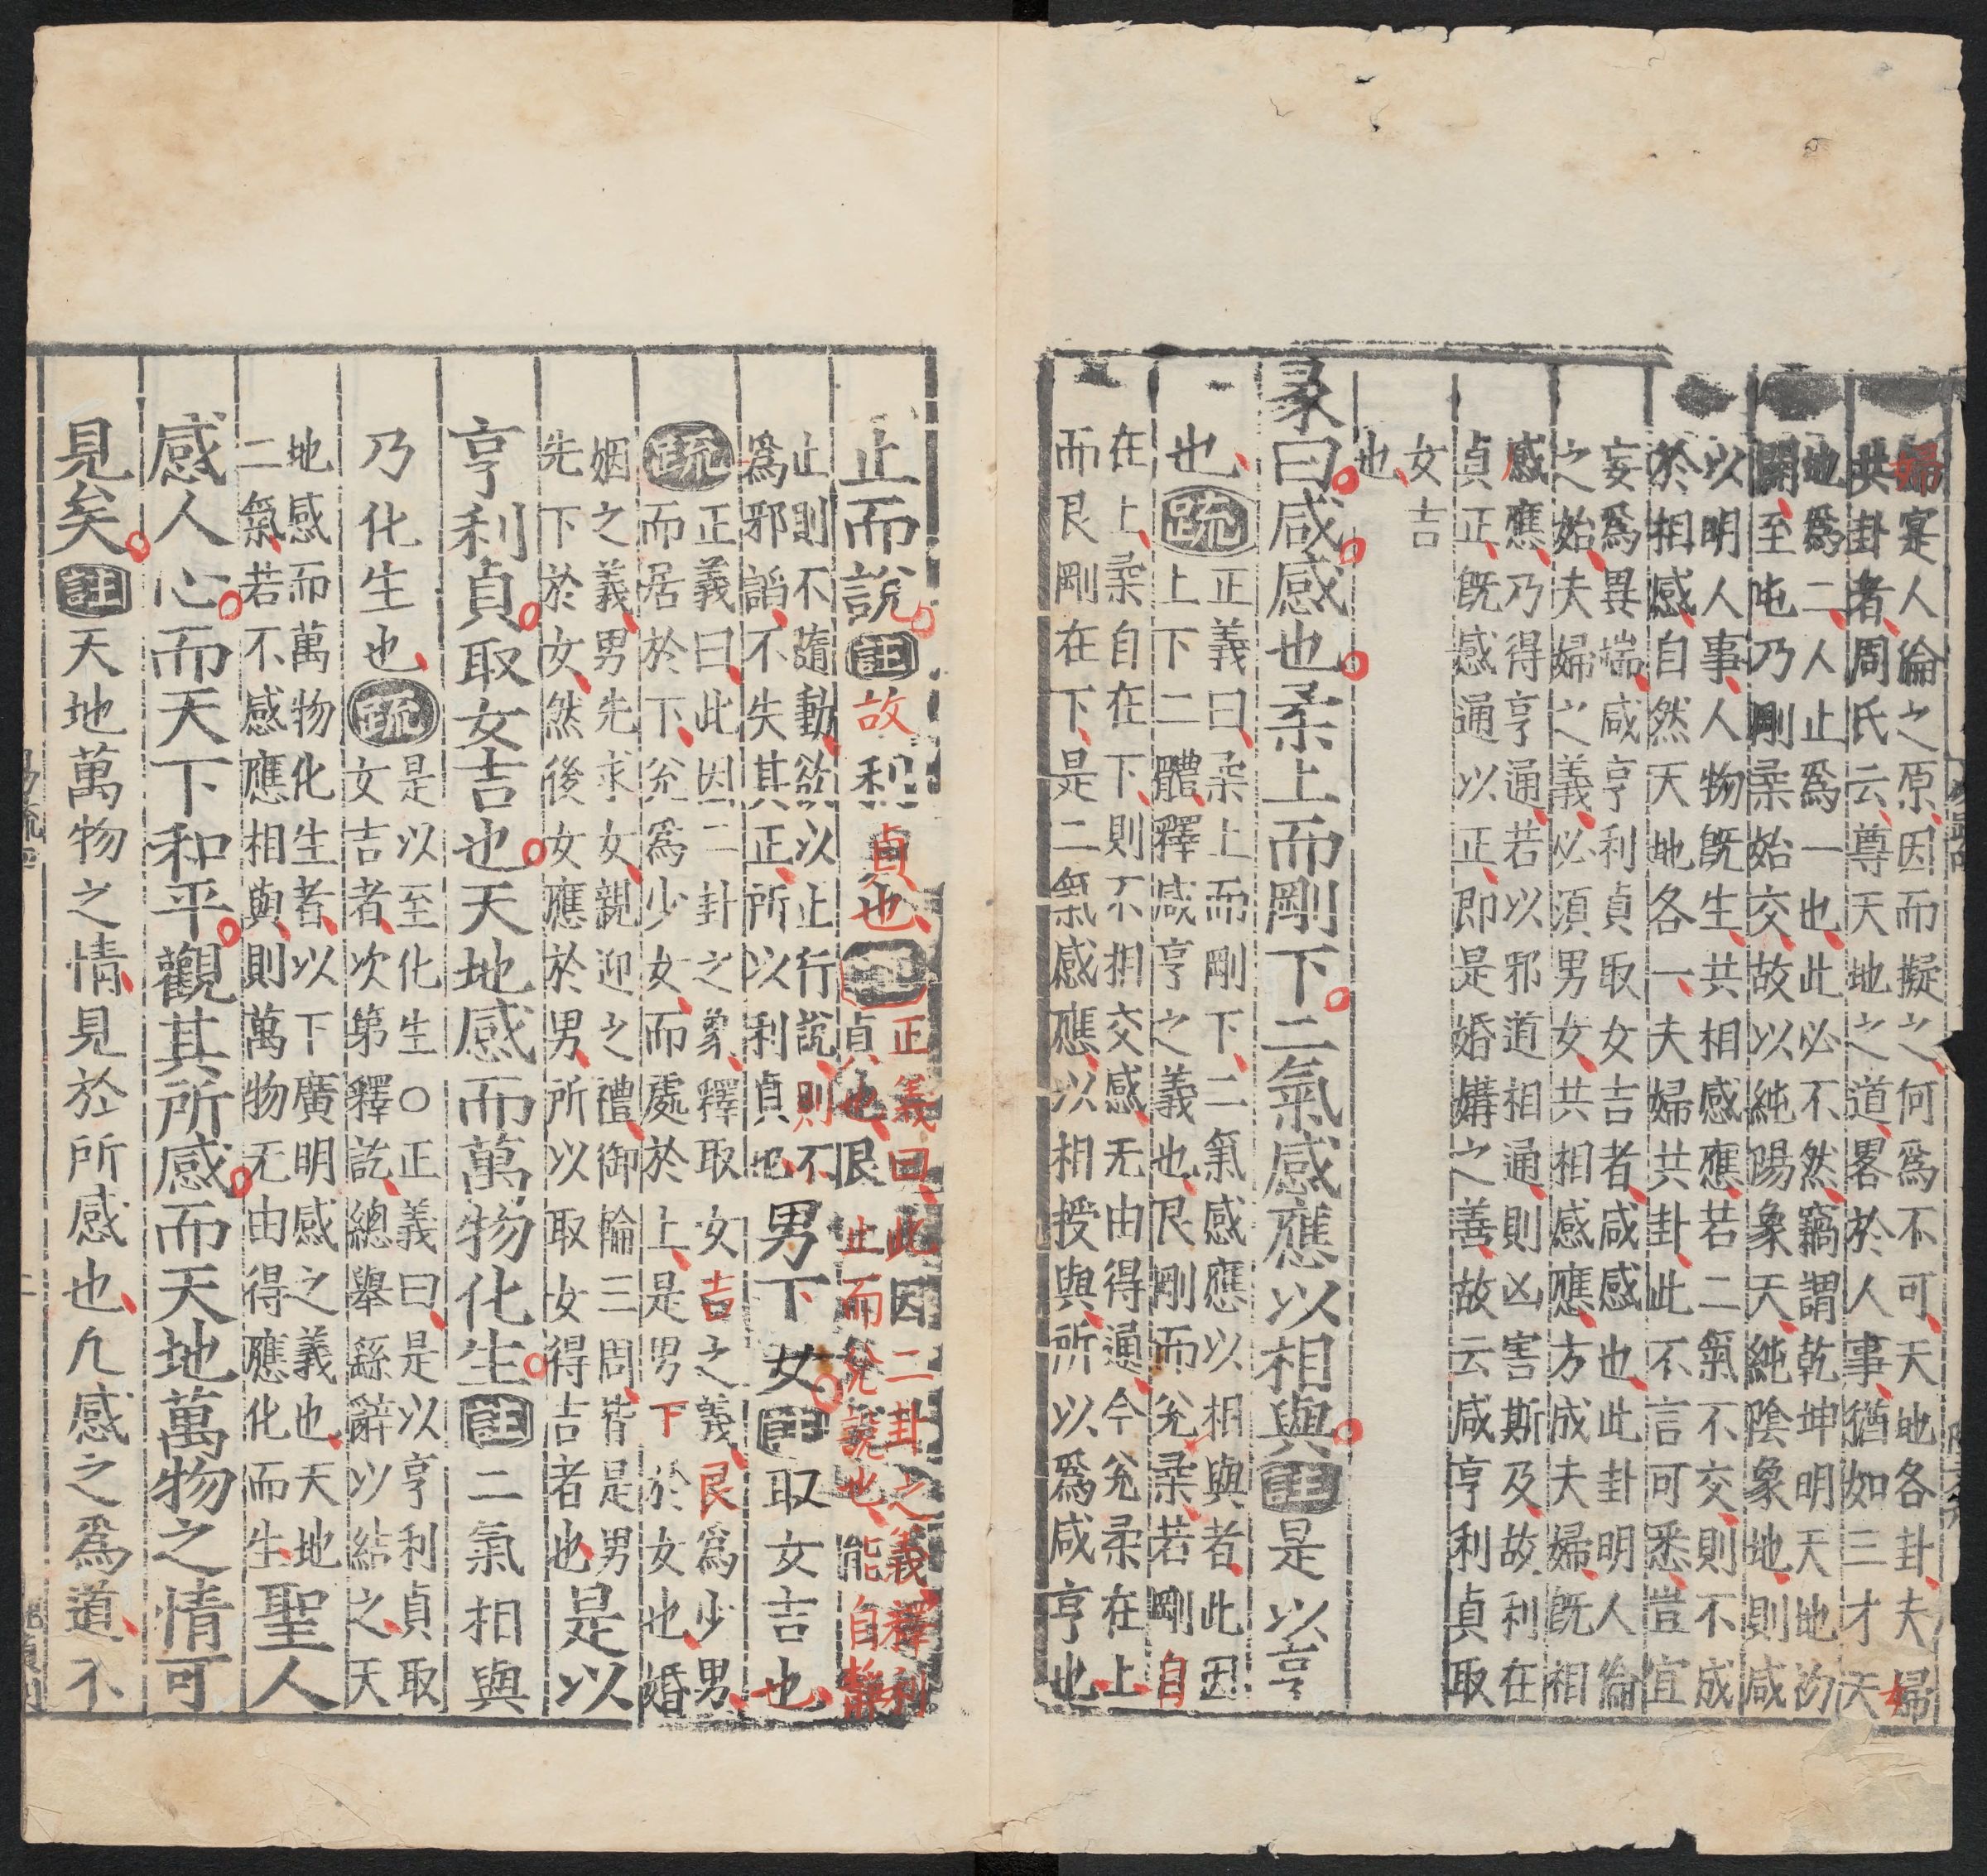 婦寔人倫之原因而擬之何爲不可天地各卦夫婦
共卦者周氏云尊天地之道畧於人事猶如三才天
地爲二人止爲一也此必不然竊謂乾坤明天地初
闢至屯乃剛柔始交故以純陽象天純陰象地則咸
以明人事人物旣生共相感應若二氣不交則不成
於相感自然天地各一夫婦共卦此不言可悉豈宜
妄爲異端咸亨利貞取女吉者咸感也此卦明人倫
之始夫婦之義必須男女共相感應方成夫婦旣相
感應乃得亨通若以邪道相通則凶害斯及故利在
貞正旣感通以正即是婚媾之善故云咸亨利貞取
女吉
也
彖曰咸感也柔上而剛下二氣感應以相與註是以亨
也疏正義曰柔上而剛下二氣感應以相與者此因
上下二體釋咸亨之義也艮剛而兌柔若剛自
在上柔自在下則不相交感无由得通今兌柔在上
而艮剛在下是二氣感應以相授與所以爲咸亨也
止而說註故利貞也疏正義曰此因二卦之義釋利
貞也艮止而兌說也能自靜
止則不隨動欲以止行說則不
爲邪謟不失其正所以利貞也男下女註取女吉也
疏正義曰此因二卦之象釋取女吉之義艮爲少男
而居於下兌爲少女而處於上是男下於女也婚
姻之義男先求女親迎之禮御輪三周皆是男
先下於女然後女應於男所以取女得吉者也是以
亨利貞取女吉也天地感而萬物化生註二氣相與
乃化生也疏是以至化生○正義曰是以亨利貞取
女吉者次第釋訖總舉繇辭以結之天
地感而萬物化生者以下廣明感之義也天地
二氣若不感應相與則萬物无由得應化而生聖人
感人心而天下和平觀其所感而天地萬物之情可
見矣註天地萬物之情見於所感也凡感之爲道不